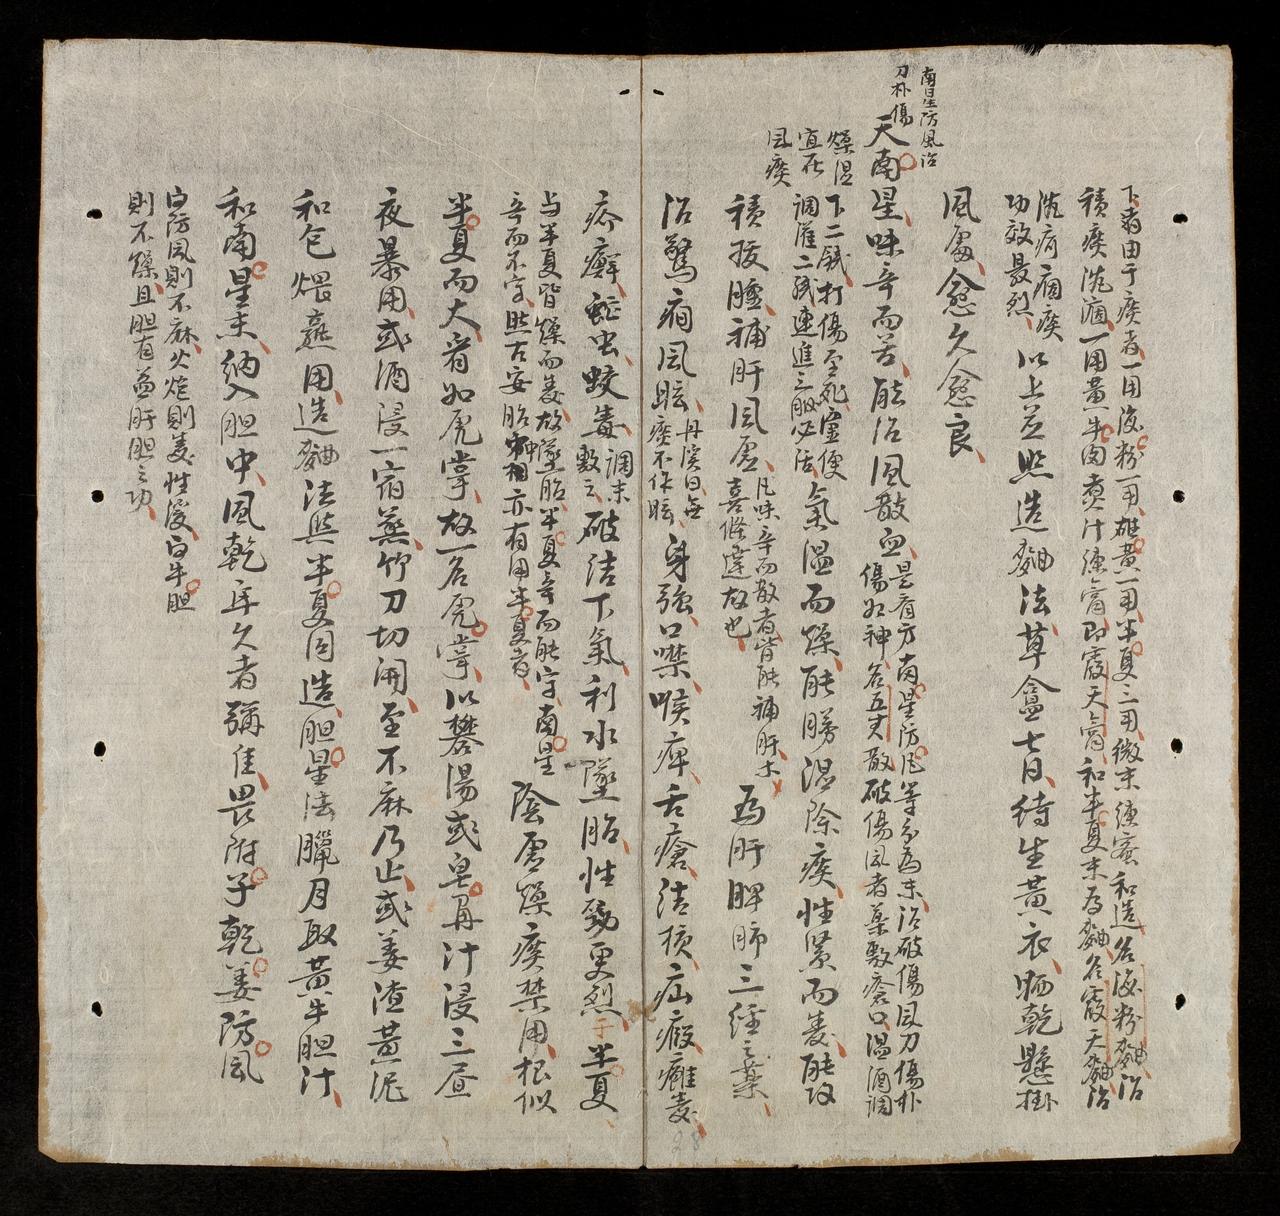 下者由于痰者一用海粉一用礞黄一用半夏三用微末煉蜜和造名海粉麯治
積痰沈痼一用黄牛肉煮汁煉膏即霞天膏和半夏末為麯名霞天麯治
沈疴痼痰
功效最烈以上並照造麯法草盦七日待生黄衣晒乾懸掛
風處愈久愈良
南星防風治
刀朴傷
天南星味辛而苦能治風散血
是看方南星防风等分為末治破傷风刀傷朴
傷如神名五丈散破傷风者藥敷瘡口温酒調
下二錢打傷至死童便
調灌二錢連進三服必活
燥湿
宜在
风痰
氣温而燥能勝湿除痰性緊而毒能攻
積拔腫補肝风虚
凡味辛而散者皆能補肝木
喜條達故也
為肝脾肺三經之藥
治驚癇风眩
丹溪曰無
痰不作眩
身强口噤喉痺舌瘡結核疝瘕癰毒
疥癬蛇虫蛟毒
調末
敷之
破結下氣利水墜胎性勁更烈于半夏
与半夏皆燥而毒故墜胎半夏辛而能守南星
辛而不守然古安胎中亦有用半夏者
陰虚燥痰禁用根似
半夏而大看如虎掌故一名虎掌以礬湯或皂角汁浸三昼
夜暴用或酒浸一宿蒸竹刀切開至不麻乃止或姜渣黄泥
和包煨熟用造麯法與半夏同造胆星法臘月取黄牛胆汁
和南星末納入胆中風乾年久者彌佳畏附子乾姜防风
白防风則不麻火炮則毒性緩白牛胆
則不燥且胆有益肝胆之功